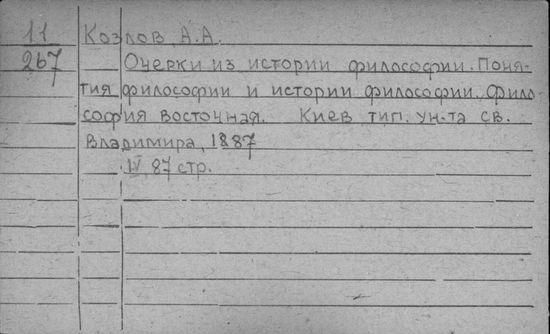 11 Козлов, А.А.
267 Очерки из истории философии. Поня-
тия философии и истории философии. Фило-
софия восточная. Киев тип. ун-та св.
Владимира, 1887
IV, 87 стр.